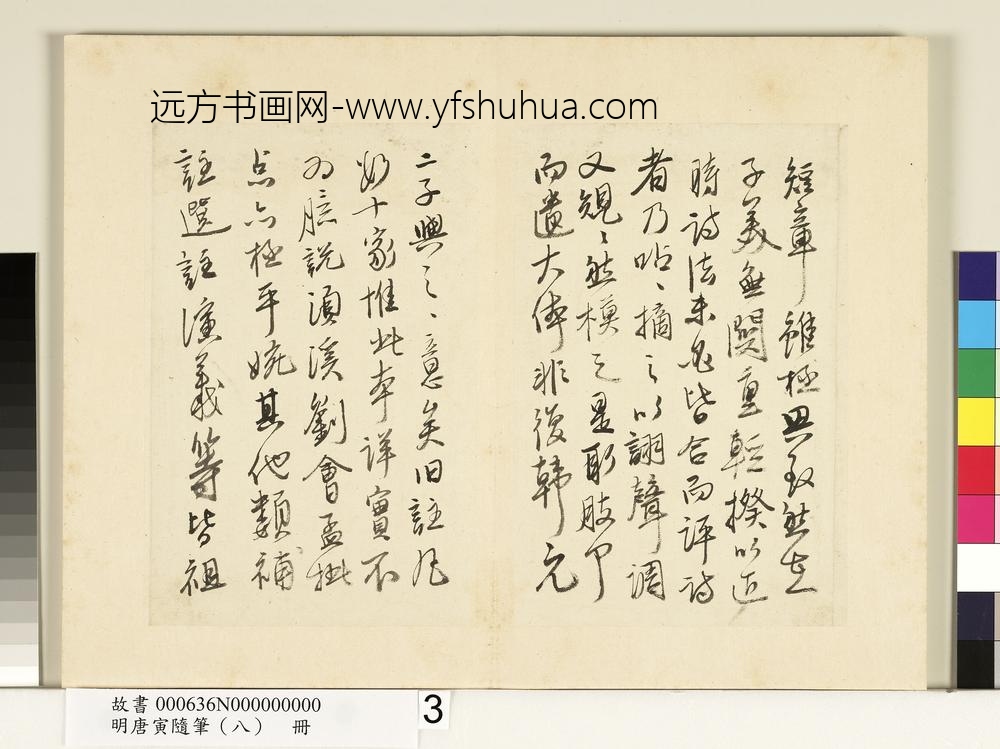 远方书画网-www.yfshuhua.com
短章雖極興致然在
子美無關重輕揆以近
時詩法未必皆合而評詩
者乃呫〻摘之以詡聲調
又規〻然模之是取肢節
而遺大體非後韓元
二子興之〻意矣旧註凡
數十家惟此本詳實不
為臆說須溪劉會孟批
点亦極平婉其他類補
註選註演義等皆祖
故書 000636N000000000
明唐寅隨筆（八） 冊
3